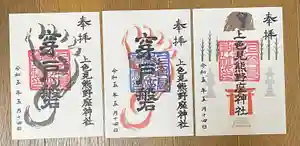 奉拝
穿戸磐岩
上色見熊野座神社
令和五年五月十四日
奉拝
穿戸磐岩
上色見熊野座神社
令和五年五月十四日
奉拝
上色見熊野座神社
令和五年五月十四日